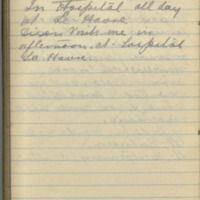 In Hospital all day
at Le Havre
visits me in
afternoon at Hospital
Le Havre